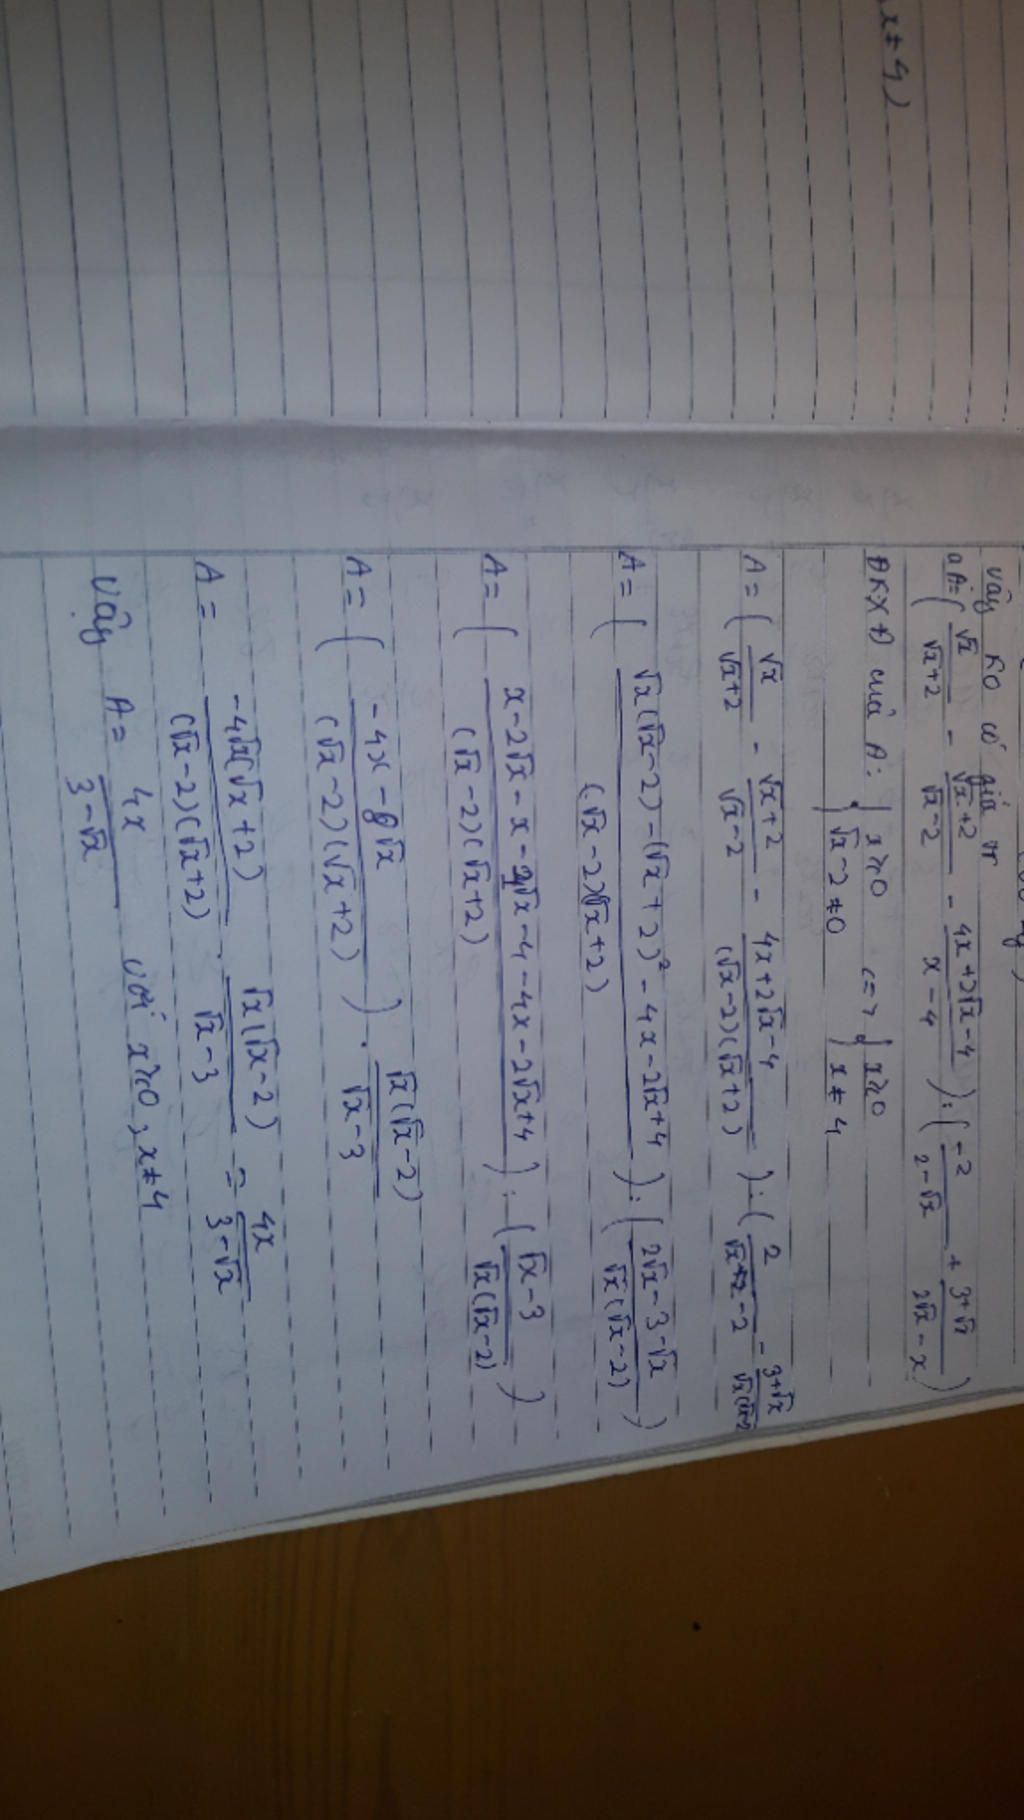 x ≠ 4)
Vậy ko có giá tr
a, A = (√x/(√x+2) - (√x+2)/(√x-2) - (4x+2√x-4)/(x-4)) : (-2/(2-√x) + (3+√x)/(2√x-x))
ĐKXĐ của A: { x ≥ 0 <=> { x ≥ 0
{ √x-2 ≠ 0 { x ≠ 4
A = (√x/(√x+2) - (√x+2)/(√x-2) - (4x+2√x-4)/((√x-2)(√x+2))) : (2/(√x-2) - (3+√x)/(√x(√x-2)))
A = ((√x(√x-2)-(√x+2)²-4x-2√x+4)/((√x-2)(√x+2))) : ((2√x-3-√x)/(√x(√x-2)))
A = ((x-2√x-x-4√x-4-4x-2√x+4)/((√x-2)(√x+2))) : ((√x-3)/(√x(√x-2)))
A = ((-4x-8√x)/((√x-2)(√x+2))) . (√x(√x-2))/(√x-3)
A = (-4√x(√x+2))/((√x-2)(√x+2)) . (√x(√x-2))/(√x-3) = 4x/(3-√x)
Vậy A = 4x/(3-√x) với x ≥ 0, x ≠ 4